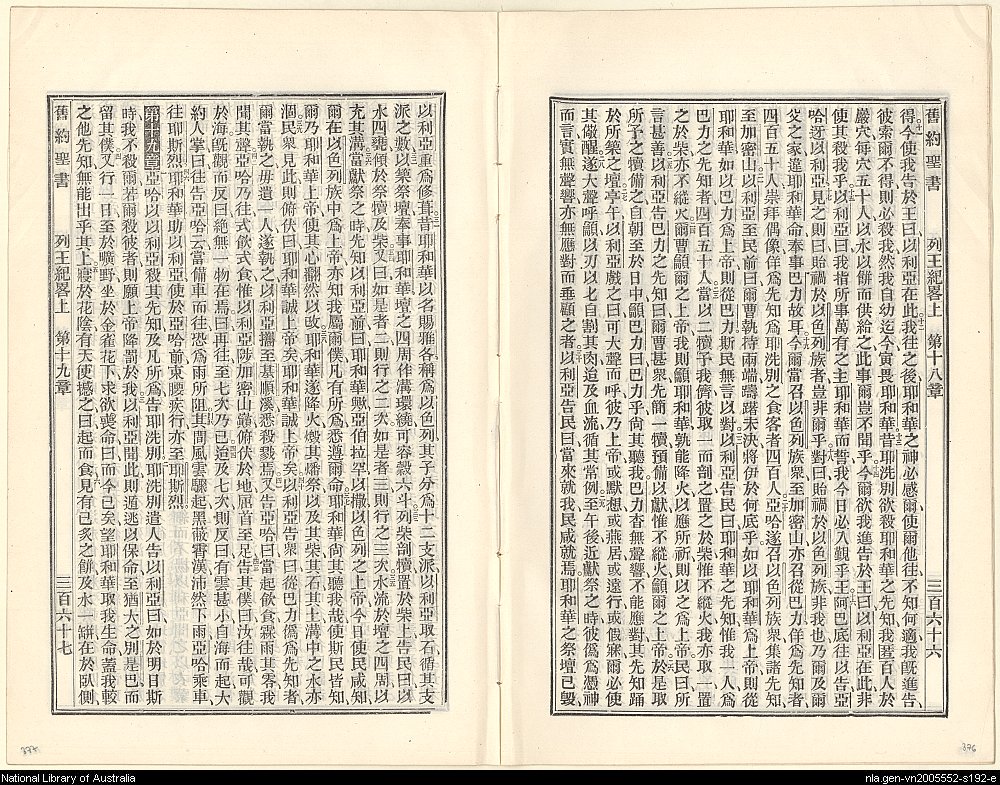 舊約聖書 列王紀畧上 第十八章 三百六十六
得今使我告於王曰以利亞在此我往之後耶和華之神必感爾使爾他往不知何適我既進告
彼索爾不得則必殺我然我自幼迄今寅畏耶和華昔耶洗別欲殺耶和華之先知我匿百人於
巖穴每穴五十人以水以餅而供給之此事爾豈不聞乎今爾欲我進告於王曰以利亞在此非
使其殺我乎以利亞曰我指所事萬有之主耶和華而誓我今日必入覲乎王阿巴底往以告亞
哈迓以利亞見之則曰貽禍於以色列族者豈非爾乎對曰貽禍於以色列族非我也乃爾及爾
父之家違耶和華命奉事巴力故耳今爾當召以色列族衆至加密山亦召從巴力佯為先知者
四百五十人崇拜偶像佯為先知為耶洗別之食客者四百人亞哈遂召以色列族衆集諸先知
至加密山以利亞至民前曰爾曹執持兩端躊躇未決將伊於何底乎如以耶和華為上帝則從
耶和華如以巴力為上帝則從巴力斯民無言以對以利亞告民曰耶和華之先知惟我一人為
巴力之先知者四百五十人當以二犢予我儕彼取一而剖之置之於柴惟不縱火我亦取一置
之於柴亦不縱火爾曹籲爾之上帝我則籲耶和華孰能降火以應所祈則以之為上帝民曰所
言甚善以利亞告巴力之先知曰爾曹甚衆先簡一犢預備以獻惟不縱火籲爾之上帝於是取
所予之犢備之自朝至於日中籲巴力曰巴力乎尚其聽我巴力杳無聲響不能應對其先知踊
於所築之壇亭午以利亞戲之曰可大聲而呼彼乃上帝或默想或燕居或遠行或假寐爾必使
其儆醒遂大聲呼籲以刃以匕自割其肉迨及血流循其常例至午後近獻祭之時彼僞為憑神
而言實無聲響亦無應對而垂顧之者以利亞告民曰當來就我民咸就焉耶和華之祭壇已毀
以利亞重為修葺昔耶和華以名賜雅各稱為以色列其子分為十二支派以利亞取石循其支
派之數以築祭壇奉事耶和華壇之四周作溝環繞可容穀六斗列柴剖犢置於柴上告民曰以
水四甕傾於祭犢及柴又曰如是者二則行之二次如是者三則行之三次水流於壇之四周以
充其溝當獻祭之時先知以利亞前曰耶和華歟亞伯拉罕以撒以色列之上帝今日使民咸知
爾在以色列族中為上帝亦知我屬爾僕凡有所為悉遵爾命耶和華尚其聽我我哉使斯民皆知
爾乃耶和華上帝使其心翻然以改耶和華遂降火燬其燔祭以及其柴其石其土溝中之水亦
涸民衆見此則俯伏曰耶和華誠上帝矣耶和華誠上帝矣以利亞告衆曰從巴力僞為先知者
爾當執之毋遺一人遂執之以利亞攜至基順溪悉殺戮焉又告亞哈曰當起飲食霖雨其零我
聞其聲亞哈乃往式飲式食惟以利亞陟加密山巔俯伏於地屈首至足告其僕曰汝往哉可觀
於海既觀而反曰絕無一物在焉曰再往至七次乃已迨及七次則反曰有雲甚小自海而起大
約人掌曰往告亞哈云當備車而往恐為雨所阻其間風雲驟起黑蔽霄漢沛然下雨亞哈乘車
往耶斯烈耶和華助以利亞使於亞哈前束腰疾行亦至耶斯烈
第十九章亞哈以以利亞殺其先知及凡所為告耶洗別耶洗別遣人告以利亞曰如於明日斯
時我不殺爾若爾殺彼者則願上帝降罰於我以利亞聞此則遁逃以保命至猶大之別是巴而
留其僕又行一日至於曠野坐於金雀花下求欲喪命曰而今已矣望耶和華取我生命蓋我較
之他先知無能出乎其上寢於花陰有天使撼之曰起而食見有已炙之餅及水一缾在於臥側
舊約聖書 列王紀畧上 第十九章 三百六十七
376
National Library of Australia
nla.gen-vn2005552-s192-e